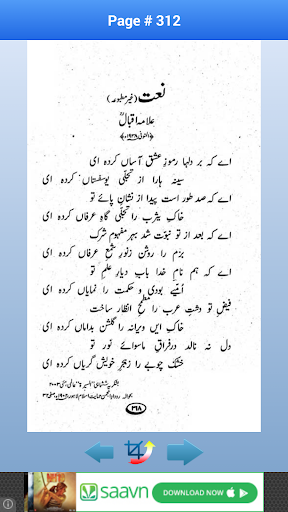 Page # 312
نعت (غیر مطبوعہ)
علامہ اقبالؒ
اے کہ بر دلہا رموزِ عشق آساں کردہ ای
سینہ ہا را از تجلّی یوسفستاں کردہ ای
اے کہ صد طور است پیدا از نشانِ پائے تو
خاکِ یثرب را تجلّی گاہِ عرفاں کردہ ای
اے کہ بعد از تو نبوّت شد بہر مفہوم شرک
بزم را روشن ز نورِ شمعِ عرفاں کردہ ای
اے کہ ہم نامِ خدا باب دیارِ علمِ تو
اُمّیے بودی و حکمت را نمایاں کردہ ای
فیضِ تو دشتِ عرب را مطمحِ انظار ساخت
خاکِ ایں ویرانہ را گلشن بداماں کردہ ای
دل نہ نالد در فراقِ ماسوائے نور تو
خشک چوبے را ز ہجرِ خویش گریاں کردہ ای
۳۱۸
saavn
DOWNLOAD NOW